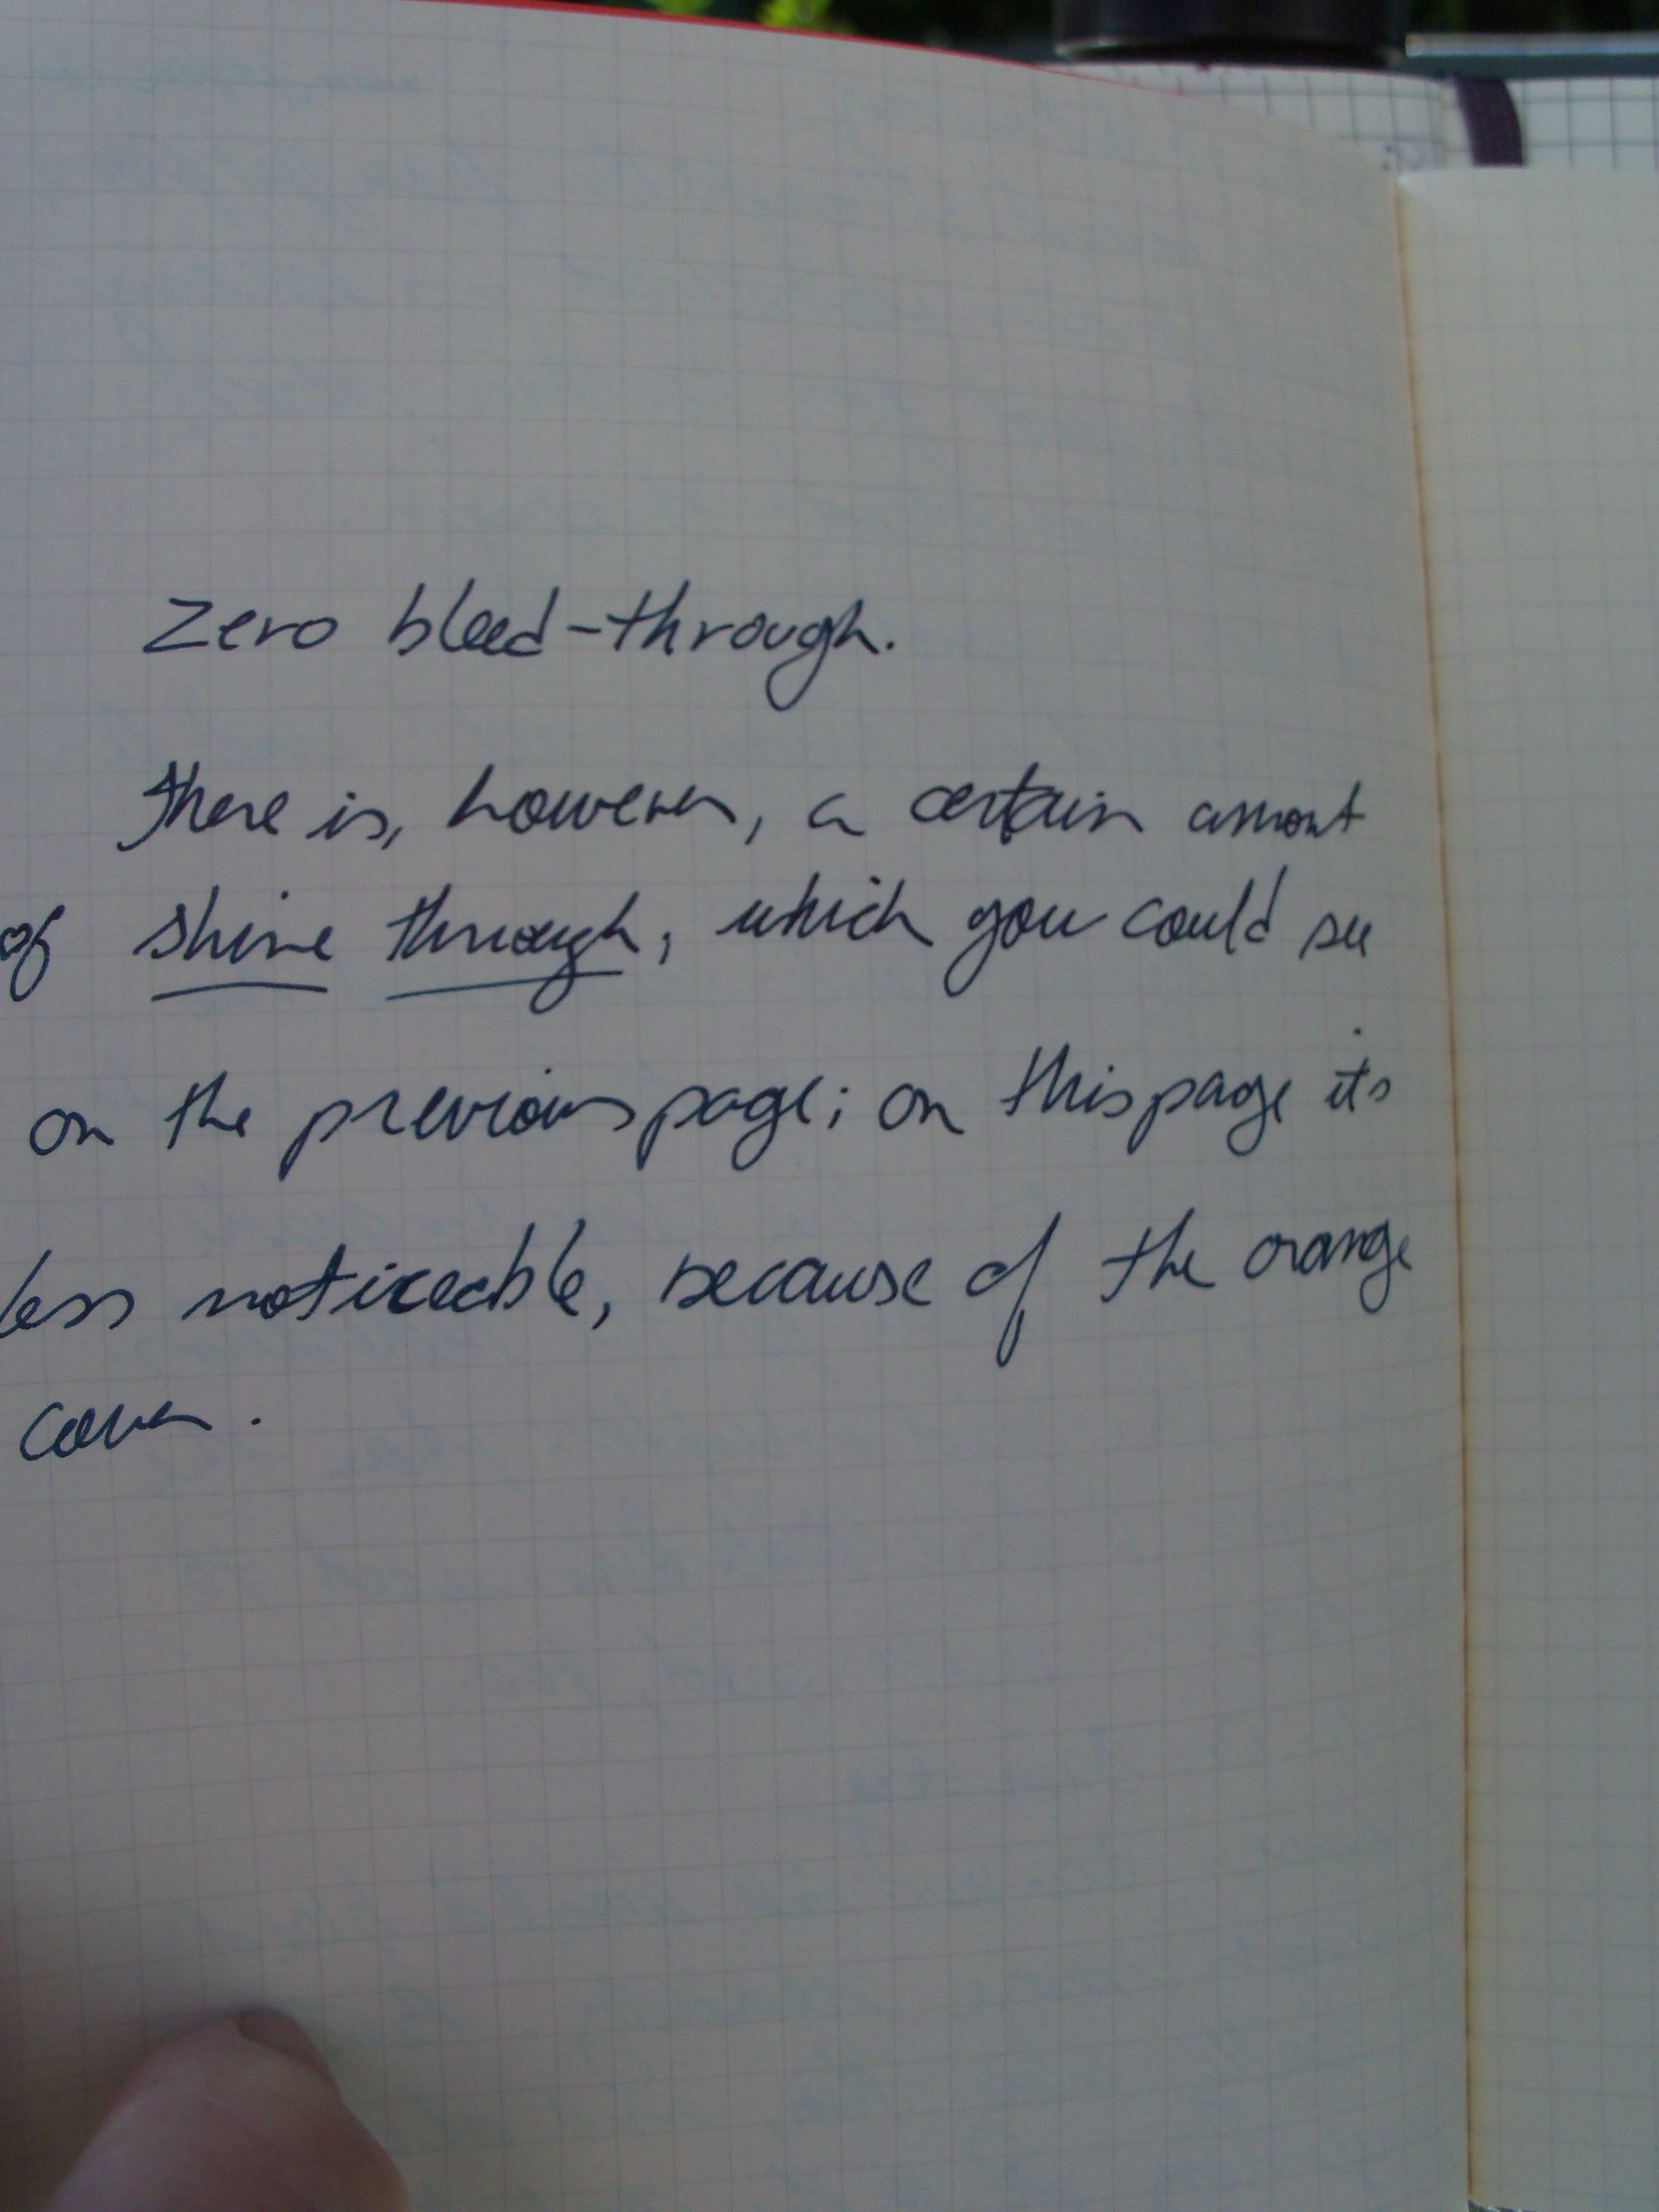 Zero bleed-through.
There is, however, a certain amont
of shine through, which you could see
on the previous page; on this page it's
less noticeable, because of the orange
cover.